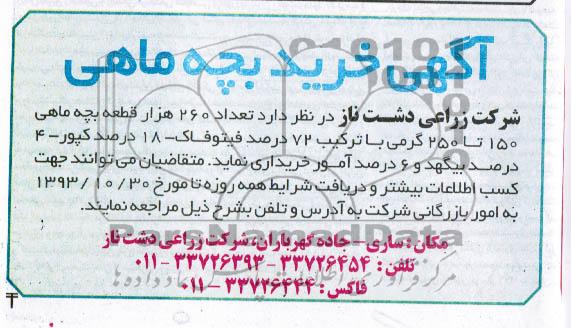 آگهی خرید بچه ماهی
شرکت زراعی دشت ناز در نظر دارد تعداد ۲۶۰ هزار قطعه بچه ماهی
۱۵۰ تا ۲۵۰ گرمی با ترکیب ۷۲ درصد فیتوفاک- ۱۸ درصد کپور- ۴
درصد بیگهد و ۶ درصد آمور خریداری نماید. متقاضیان می توانند جهت
کسب اطلاعات بیشتر و دریافت شرایط همه روزه تا مورخ ۱۳۹۳/۱۰/۳۰
به امور بازرگانی شرکت به آدرس و تلفن بشرح ذیل مراجعه نمایند.
مکان: ساری - جاده گهرباران، شرکت زراعی دشت ناز
تلفن: ۳۳۷۲۶۴۵۴ - ۳۳۷۲۶۳۹۳ - ۰۱۱
فاکس: ۳۳۷۲۶۴۴۴ - ۰۱۱
ParsNamadData